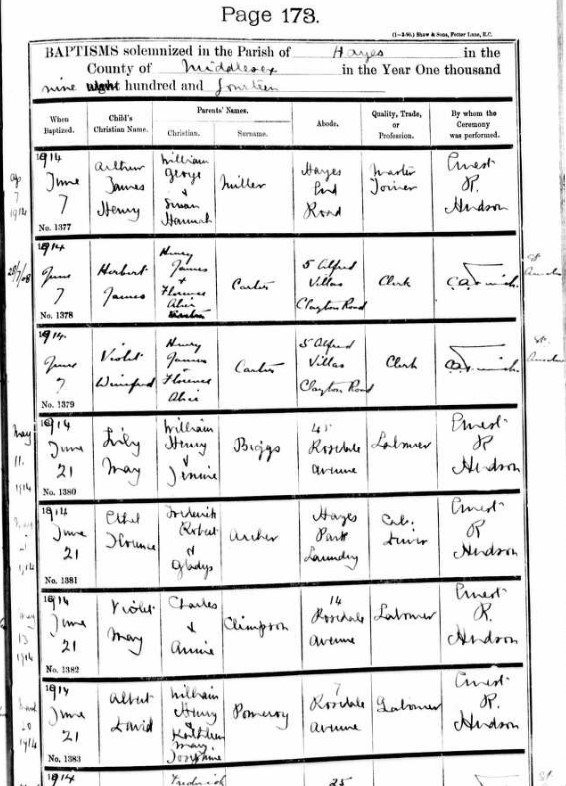 Page 173.
(1—3-90.) Shaw & Sons, Fetter Lane, E.C.
BAPTISMS solemnized in the Parish of Hayes in the
County of Middlesex in the Year One thousand
nine eight hundred and fourteen
When Baptized.
Child's Christian Name.
Parents' Names.
Christian.
Surname.
Abode.
Quality, Trade, or Profession.
By whom the Ceremony was performed.
1914
June
7
No. 1377
Arthur
James
Henry
William
George
&
Susan
Hannah
Miller
Hayes
End
Road
Master
Joiner
Ernest
R.
Hudson
1914
June
7
No. 1378
Herbert
James
Henry
James
+
Florence
Alice
Carter
5 Alfred
Villas
Clayton Road
Clerk
1914.
June
7
No. 1379
Violet
Winifred
Henry
James
Florence
Alice
Carter
5 Alfred
Villas
Clayton Road
Clerk
May
11.
1914
1914
June
21
No. 1380
Lily
May
William
Henry
&
Jennie
Biggs
Rosedale
Avenue
Labourer
Ernest
R
Hudson
1914
1914
June
21
No. 1381
Ethel
Florence
Frederick
Robert
&
Gladys
Archer
Hayes
Park
Laundry
Cab.
Driver
Ernest
R
Hudson
May
13
1914
1914
June
21
No. 1382
Violet
May
Charles
&
Annie
Climpson
14
Rosedale
Avenue
Labourer
Ernest
R.
Hudson
20
1914
1914
June
21
No. 1383
Albert
David
William
Henry
&
Kathleen
May
Josephine
Pomeroy
7
Rosedale
Avenue
Labourer
Ernest
R.
Hudson
1914
Frederick
25